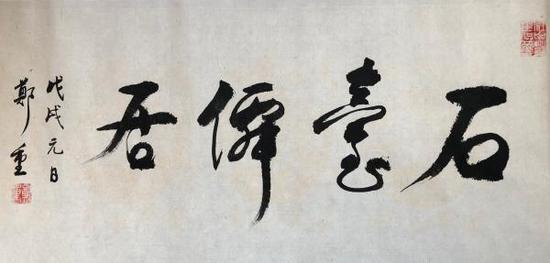 石臺居
戊戌元日
鄭重